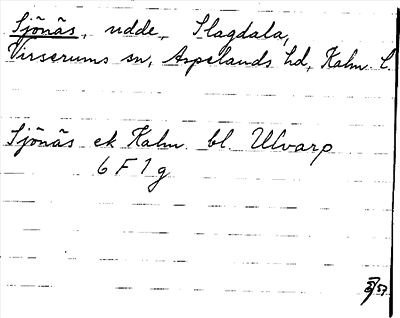 Sjönäs, udde, Slagdala,
Virserums sn, Aspelands hd, Kalm. l.
Sjönäs ek Kalm. bl. Ulvarp
6 F 1 g